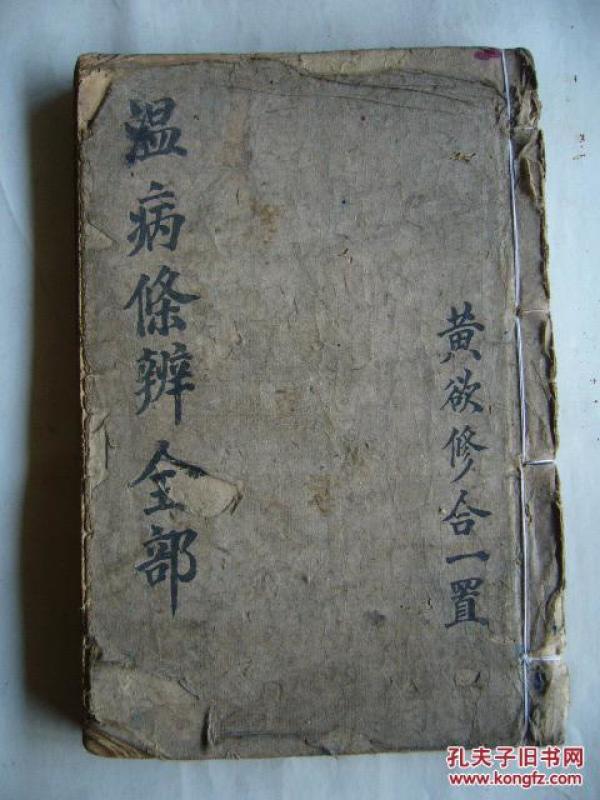 温病條辨全部
黄欲修合一置
孔夫子旧书网
www.kongfz.com